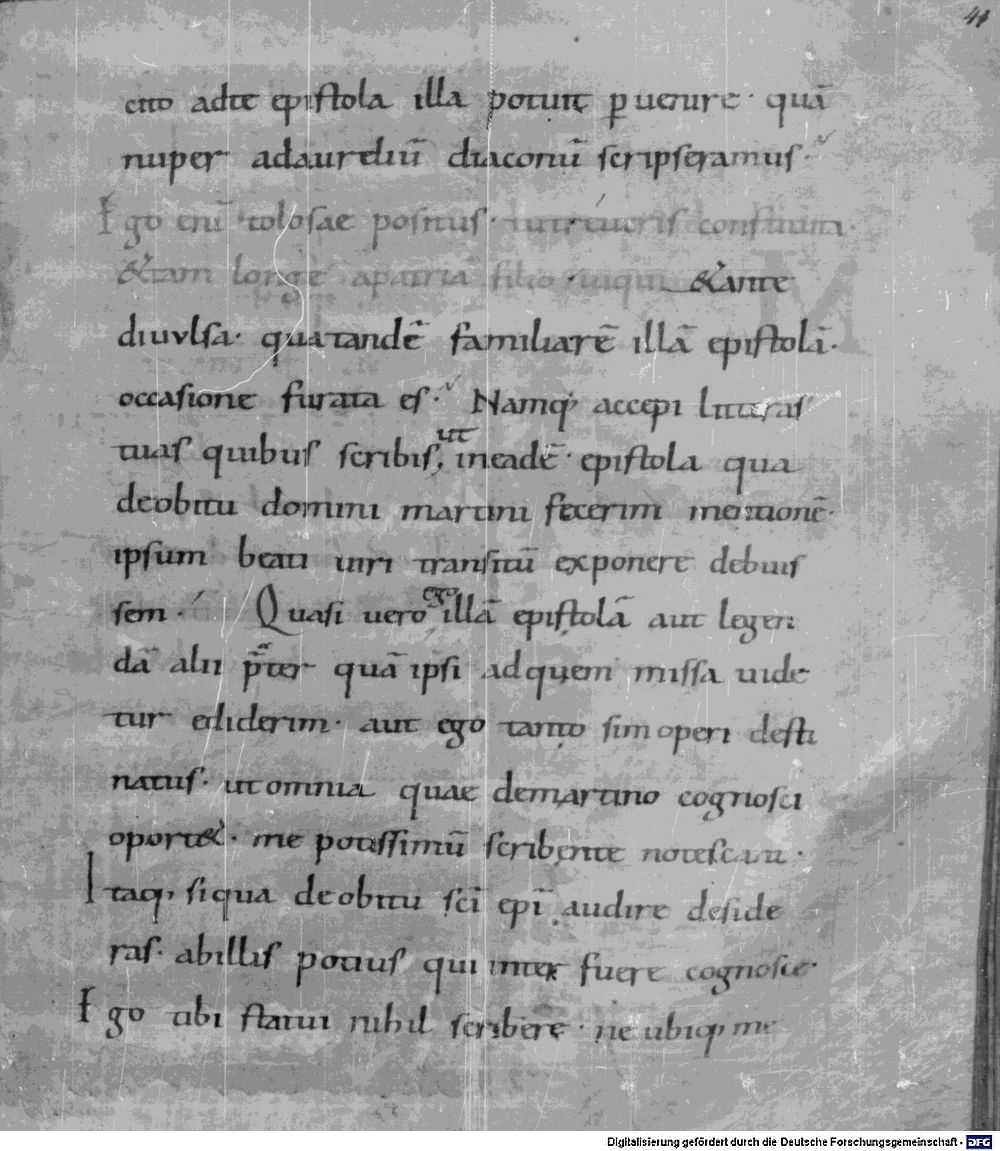 41
cito adte epistola illa potuit p̱ uenire · quā
nuper adaureliū diaconū scripseramus ·
Ego eni tolosae positus · tu treueris constituta ·
&tam longe apatria filio inqui &ante
diuulsa · quatandē familiarē illā epistolā ·
occasione furata es · Namq; accepi litteras
tuas quibus scribis, ut ineadē · epistola qua
deobitu domini martini fecerim mentionē ·
ipsum beati uiri transitū exponere debuis
sem · Quasi uero ego illā epistolā aut legen
dā alii p̄ter quā ipsi adquem missa uide
tur ediderim · aut ego tanto sim operi desti
natus · utomnia quae demartino cognosci
oport& · me potissimū scribente notescant ·
Itaq; siqua deobitu sc̄i ep̄i audire deside
ras · abillis potius qui inter fuere cognosce ·
Ego tibi statui nihil scribere · ne ubiq; me
Digitalisierung gefördert durch die Deutsche Forschungsgemeinschaft - DFG